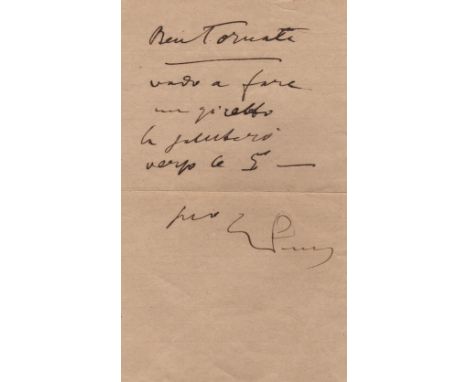 Ben Tornata
vado a fare
un giretto
la saluterò
verso le 5 —
suo